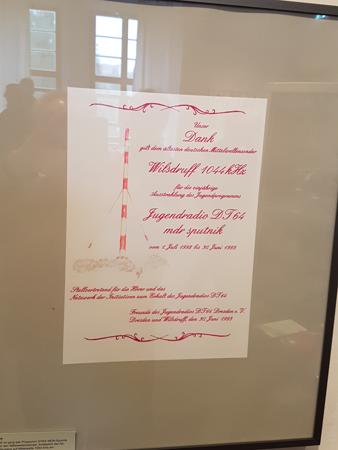 Unser
Dank
gilt dem ältesten deutschen Mittelwellensender
Wilsdruff 1044 kHz
für die einjährige
Ausstrahlung des Jugendprogramms
Jugendradio DT 64
mdr sputnik
vom 1. Juli 1992 bis 30. Juni 1993
Stellvertretend für die Hörer und das
Netzwerk der Initiativen zum Erhalt des Jugendradios DT 64
Freunde des Jugendradios DT 64 Dresden e. V.
Dresden und Wilsdruff, den 30. Juni 1993